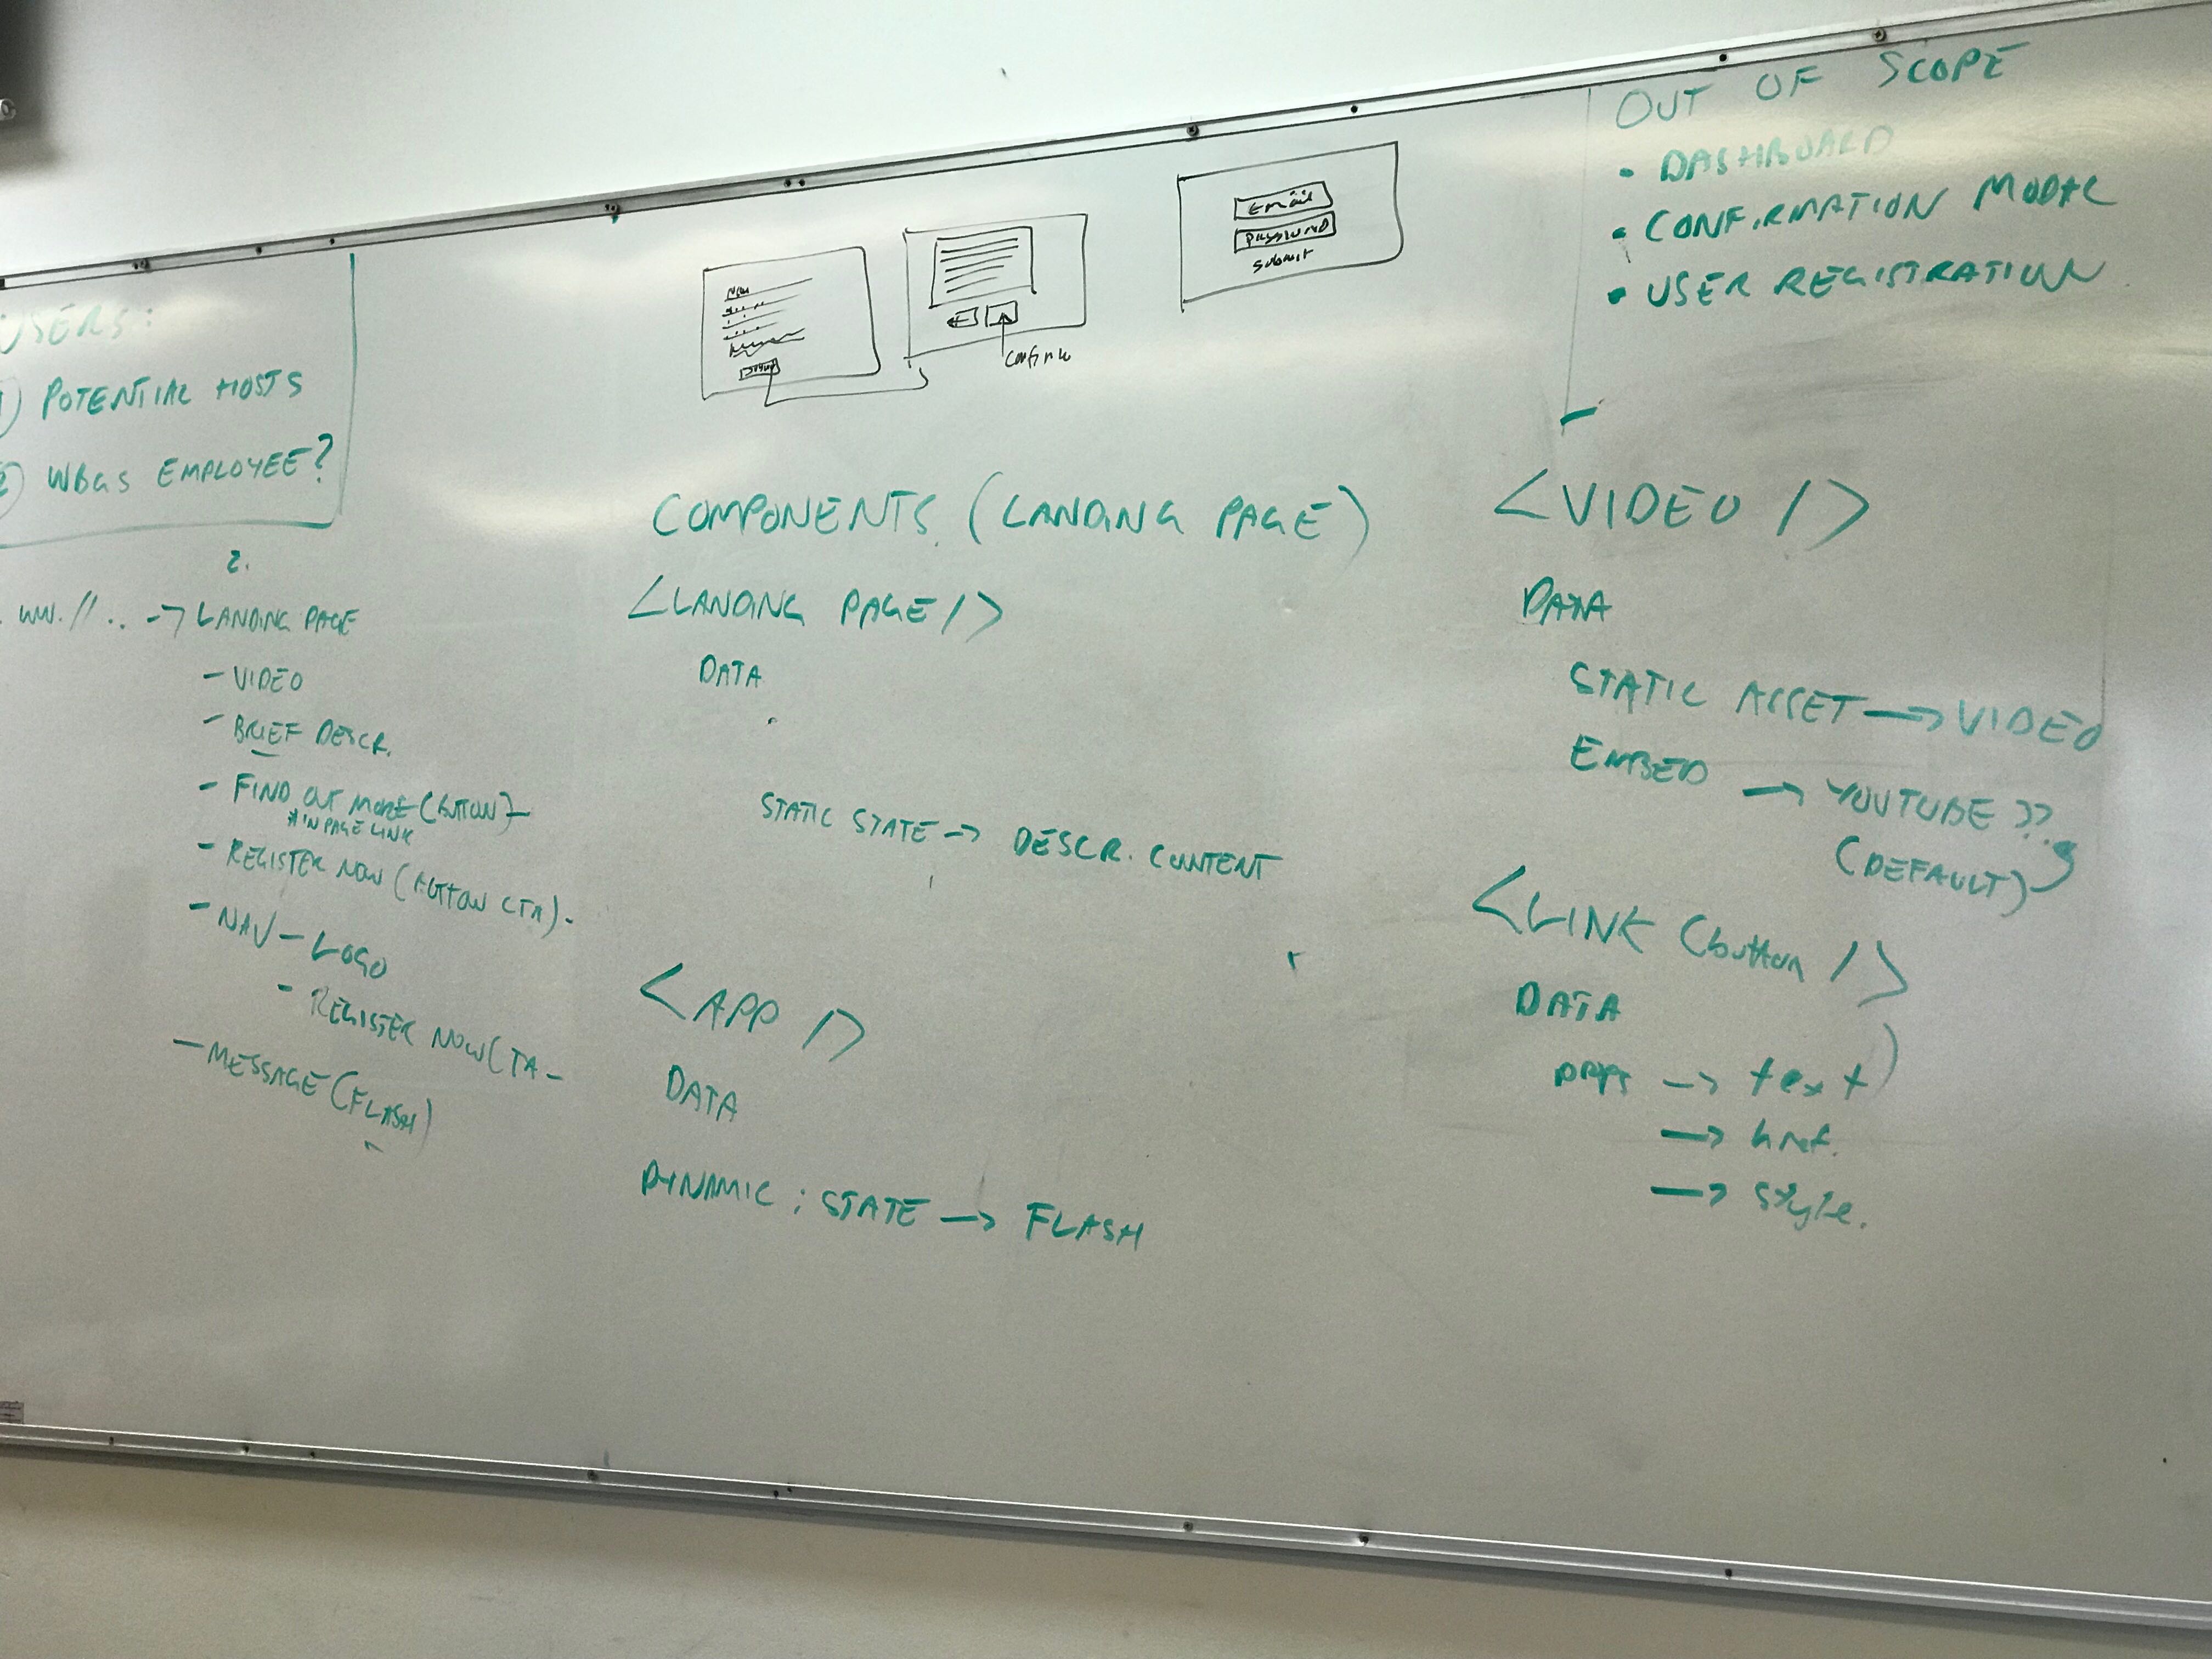 USERS:
1) POTENTIAL HOSTS
2) WBGS EMPLOYEE?
2.
. WW. // .. -> LANDING PAGE
- VIDEO
- BRIEF DESCR.
- FIND OUT MORE (BUTTON) -
* IN PAGE LINK
- REGISTER NOW (BUTTON CTA) -
- NAV - LOGO
- REGISTER NOW CTA -
- MESSAGE (FLASH)
Email
Password
Submit
COMPONENTS (LANDING PAGE)
<LANDING PAGE />
DATA
STATIC STATE -> DESCR. CONTENT
<APP />
DATA
DYNAMIC : STATE -> FLASH
OUT OF SCOPE
• DASHBOARD
• CONFIRMATION MODAL
• USER REGISTRATION
<VIDEO />
DATA
STATIC ASSET -> VIDEO
EMBED -> YOUTUBE ??
(DEFAULT)
<LINK (button />
DATA
props -> text)
-> href.
-> style.